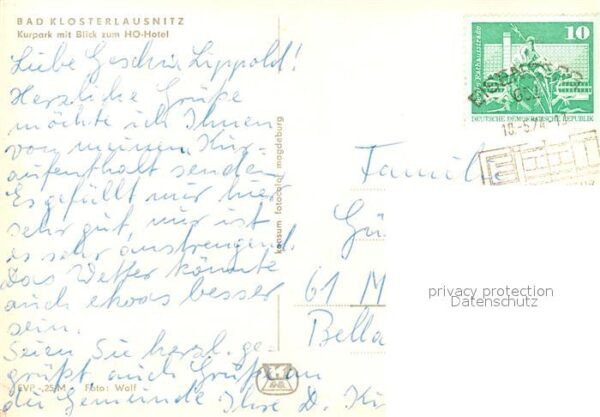 BAD KLOSTERLAUSNITZ
Kurpark mit Blick zum HO-Hotel
Liebe Geschw. Lippold!
Herzliche Grüße
möchte ich Ihnen
von meinem Kur-
aufenthalt senden.
Es gefällt mir hier
sehr gut, nur ist
es sehr anstrengend.
Das Wetter könnte
auch etwas besser
sein.
Seien Sie herzl. ge-
grüßt auch Grüße an
die Gemeinde Ihre D. Ki
EVP -,25 M Foto: Wolf
konsum fotocolor magdeburg
10
Rathausstraße
DEUTSCHE DEMOKRATISCHE REPUBLIK
Familie
Gü
61 M
Bella
privacy protection
Datenschutz